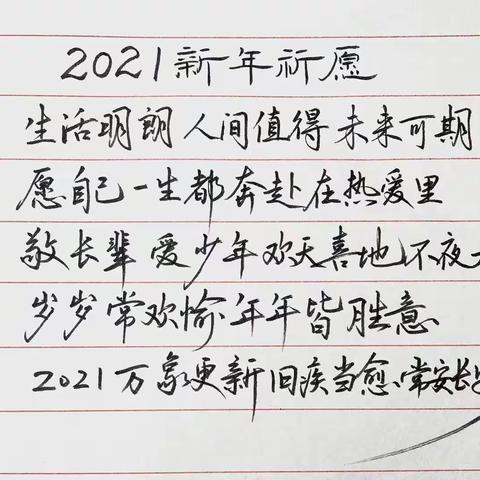 2021新年祈愿
生活明朗 人间值得 未来可期
愿自己一生都奔赴在热爱里
敬长辈 爱少年 欢天喜地 不夜
岁岁常欢愉 年年皆胜意
2021万象更新 旧疾当愈、常安长